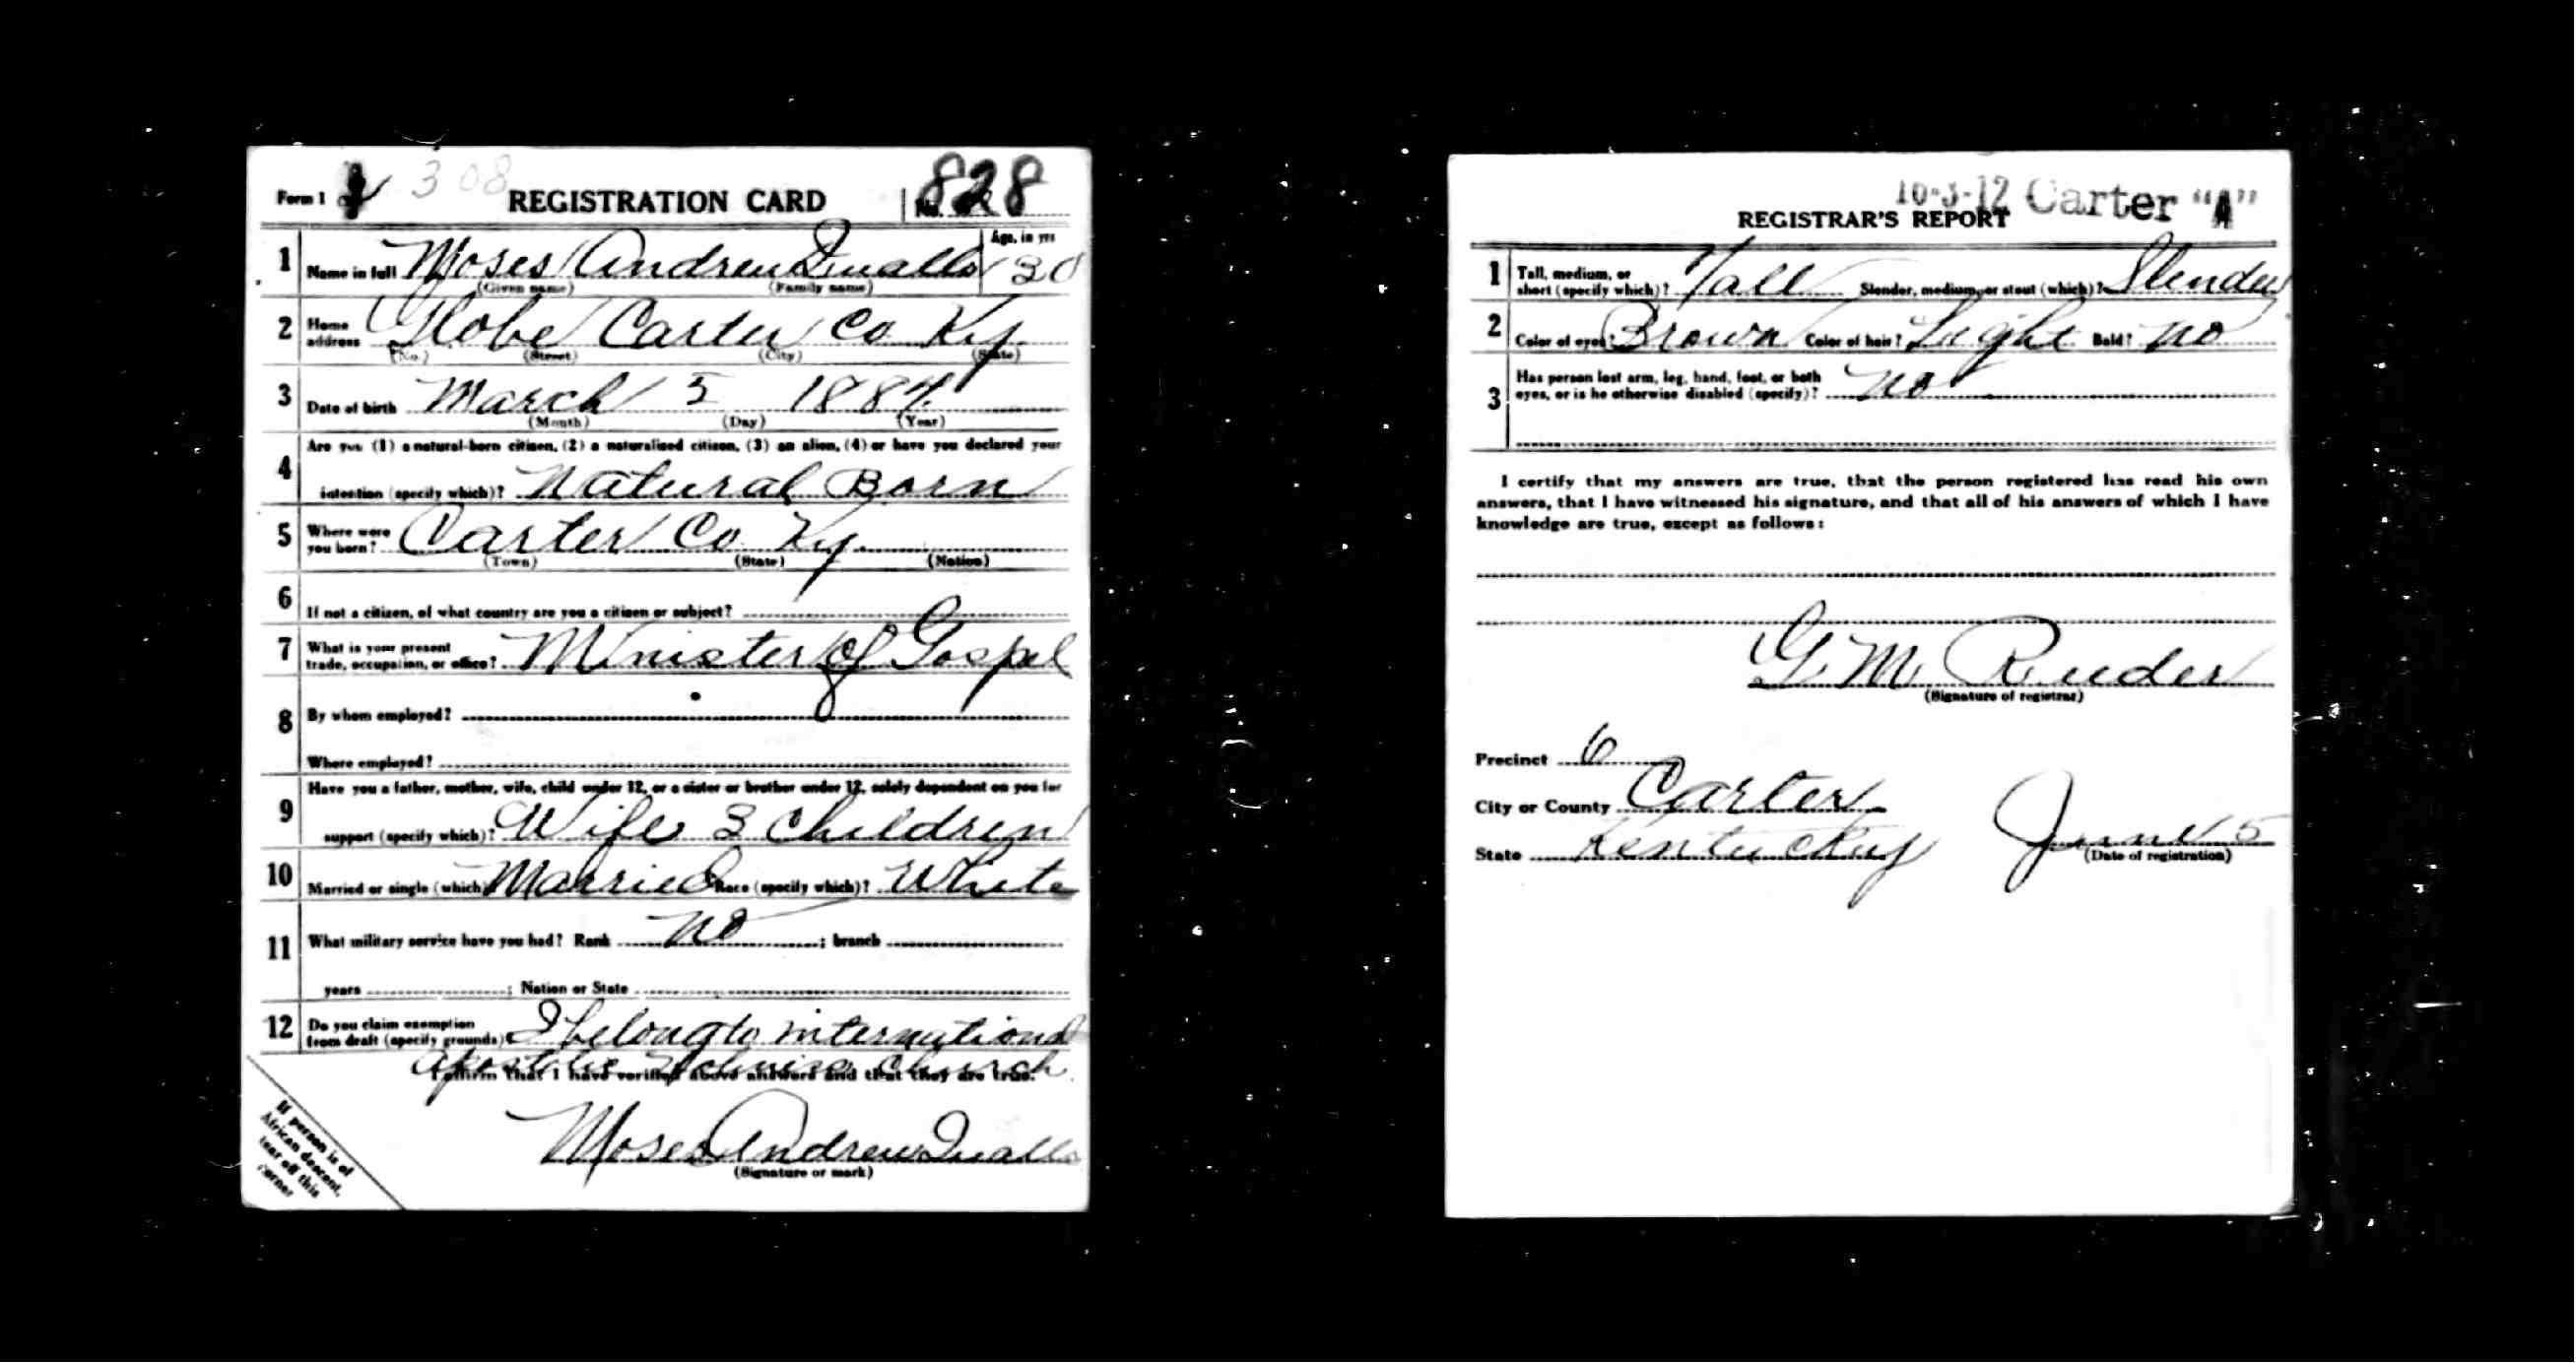 Form 1 308 REGISTRATION CARD No. 828
1 Name in full Moses Andrew Qualls Age, in yrs 30
(Given name) (Family name)
2 Home address Globe Carter Co Ky.
(No.) (Street) (City) (State)
3 Date of birth March 5 1887
(Month) (Day) (Year)
4 Are you (1) a natural-born citizen, (2) a naturalized citizen, (3) an alien, (4) or have you declared your
intention (specify which)? Natural Born
5 Where were you born? Carter Co Ky.
(Town) (State) (Nation)
6 If not a citizen, of what country are you a citizen or subject?
7 What is your present
trade, occupation, or office? Minister of Gospel
8 By whom employed?
Where employed?
9 Have you a father, mother, wife, child under 12, or a sister or brother under 12, solely dependent on you for
support (specify which)? Wife 3 Children
10 Married or single (which)? Married Race (specify which)? White
11 What military service have you had? Rank No ; branch
years ; Nation or State
12 Do you claim exemption
from draft (specify grounds)? I belong to international
apostolic Holiness Church
I affirm that I have verified above answers and that they are true.
Moses Andrew Qualls
(Signature or mark)
If person is of
African descent,
tear off this
corner
10-3-12 Carter "A"
REGISTRAR'S REPORT
1 Tall, medium, or
short (specify which)? Tall Slender, medium, or stout (which)? Slender
2 Color of eyes? Brown Color of hair? Light Bald? No
3 Has person lost arm, leg, hand, foot, or both
eyes, or is he otherwise disabled (specify)? No
I certify that my answers are true, that the person registered has read his own
answers, that I have witnessed his signature, and that all of his answers of which I have
knowledge are true, except as follows:
G. M.
(Signature of registrar)
Precinct 6
City or County Carter
State Kentucky June 5
(Date of registration)